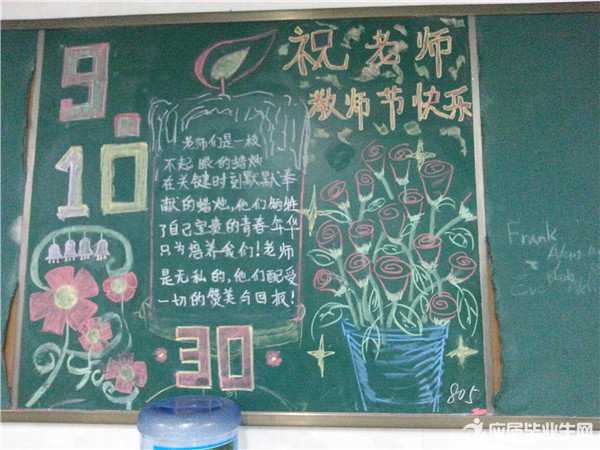 9.
10
祝老师
教师节快乐
老师们是一枝
不起眼的蜡烛
在关键时刻默默奉
献的蜡烛,他们牺牲
了自己宝贵的青春年华
只为培养我们!老师
是无私的,他们配受
一切的赞美与回报!
30
805
Frank
应届毕业生网